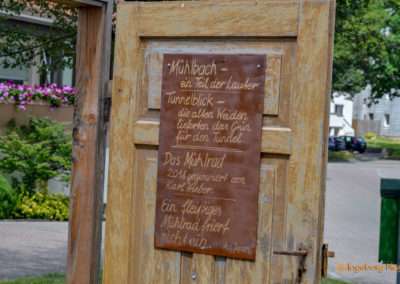 Mühlbach –
ein Teil der Lauter
Tunnelblick –
die alten Weiden
lieferten das Grün
für den Tunnel.
Das Mühlrad
2018 gezimmert von
Karl
Ein fleißiges
Mühlrad friert
nicht ein.
Japan
© Ingeborg